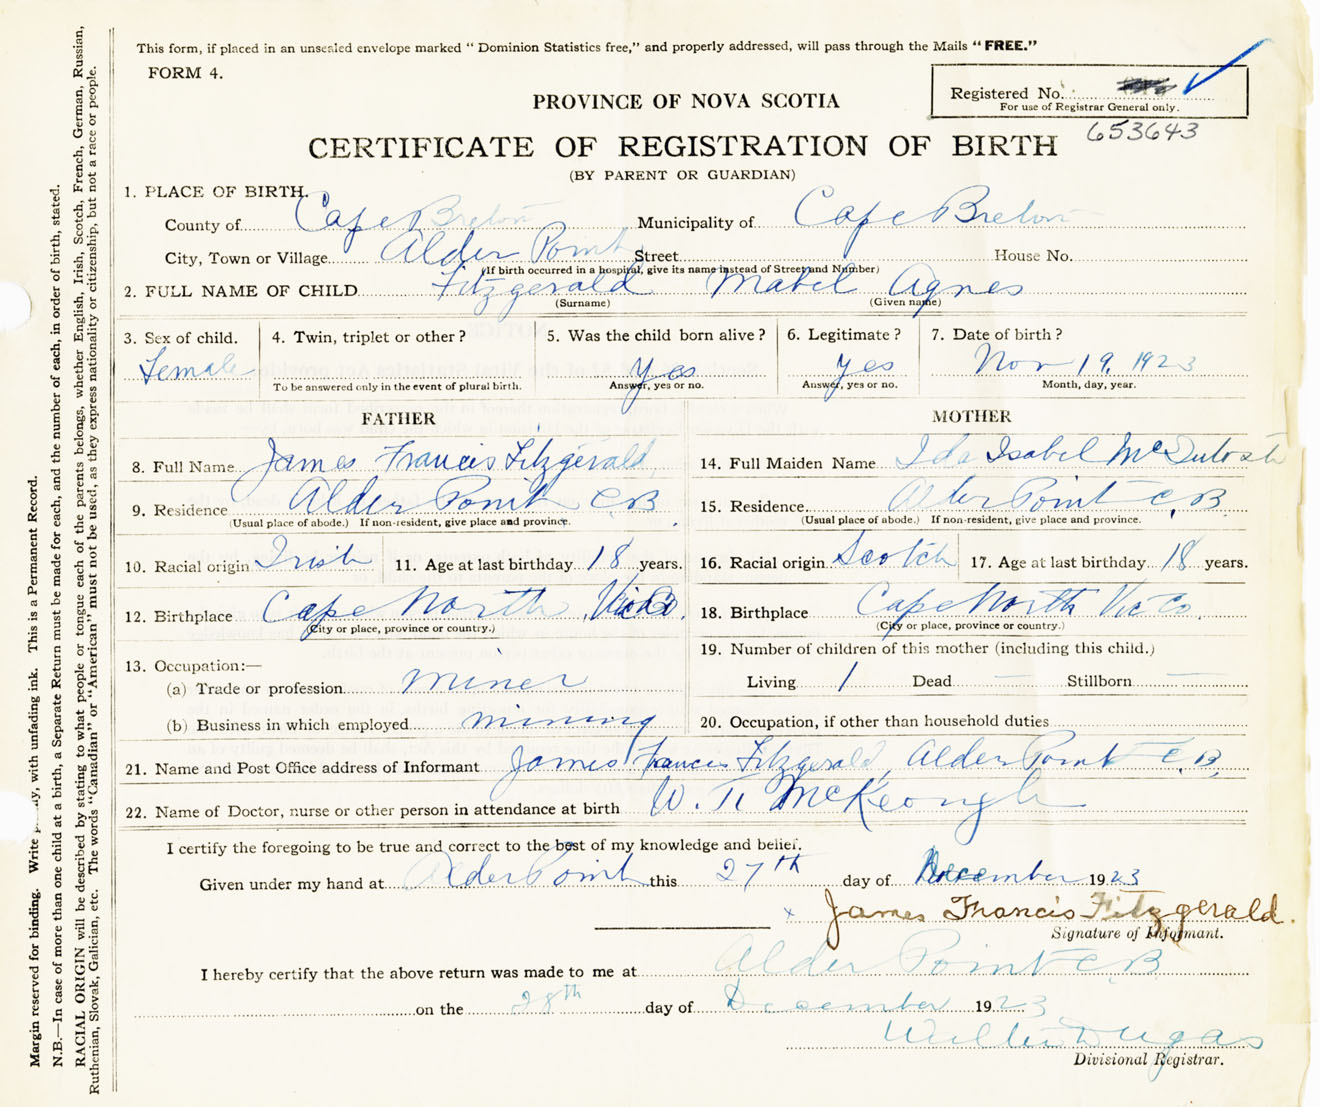 This form, if placed in an unsealed envelope marked "Dominion Statistics free," and properly addressed, will pass through the Mails "FREE."
FORM 4.
Registered No.
For use of Registrar General only.
653643
PROVINCE OF NOVA SCOTIA
CERTIFICATE OF REGISTRATION OF BIRTH
(BY PARENT OR GUARDIAN)
1. PLACE OF BIRTH.
County of Cape Breton Municipality of Cape Breton
City, Town or Village Alder Point Street House No.
(If birth occurred in a hospital, give its name instead of Street and Number)
2. FULL NAME OF CHILD Fitzgerald Mabel Agnes
(Surname) (Given name)
3. Sex of child. 4. Twin, triplet or other? 5. Was the child born alive? 6. Legitimate? 7. Date of birth?
Female Yes yes Nov 19, 1923
To be answered only in the event of plural birth. Answer, yes or no. Answer, yes or no. Month, day, year.
FATHER MOTHER
8. Full Name James Francis Fitzgerald 14. Full Maiden Name Ida Isabel McIntosh
9. Residence Alder Point C.B. 15. Residence Alder Point C.B.
(Usual place of abode.) If non-resident, give place and province. (Usual place of abode.) If non-resident, give place and province.
10. Racial origin Irish 11. Age at last birthday 18 years. 16. Racial origin Scotch 17. Age at last birthday 18 years.
12. Birthplace Cape North, Vic Co. 18. Birthplace Cape North Vic Co.
(City or place, province or country.) (City or place, province or country.)
13. Occupation:— 19. Number of children of this mother (including this child.)
(a) Trade or profession miner Living 1 Dead — Stillborn —
(b) Business in which employed mining 20. Occupation, if other than household duties
21. Name and Post Office address of Informant James Francis Fitzgerald, Alder Point C.B.
22. Name of Doctor, nurse or other person in attendance at birth McKeough
I certify the foregoing to be true and correct to the best of my knowledge and belief.
Given under my hand at Alder Point this 27th day of December 1923
x James Francis Fitzgerald.
Signature of Informant.
I hereby certify that the above return was made to me at Alder Point C.B.
on the 28th day of December 1923
Dugas
Divisional Registrar.
Margin reserved for binding. Write with unfading ink. This is a Permanent Record.
N.B.—In case of more than one child at a birth, a Separate Return must be made for each, and the number of each, in order of birth, stated.
RACIAL ORIGIN will be described by stating to what people or tongue each of the parents belongs, whether English, Irish, Scotch, French, German, Russian,
Ruthenian, Slovak, Galician, etc. The words "Canadian" or "American" must not be used, as they express nationality or citizenship, but not a race or people.